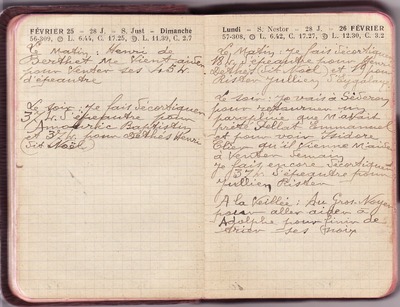 FÉVRIER 25 - 28 J. - S. Just - Dimanche
56-309, L. 6.44, C. 17.25, D. L. 11.39, C. 2.7
Le Matin: Henri de
Berthet me vient aider
pour Venter ses 454.
d'épeautre
Le soir: je fais décortiquer
3/4. d'épeautre pour
Baptistin
et 3/4. pour Béthes Henri
dit Noël
Lundi - S. Nestor - 28 J. - 26 FÉVRIER
57-308, L. 6.42, C. 17.27, D. L. 12.30, C. 3.2
Le Matin: je fais décortiquer
184. d'épeautre pour Henri
dit Noël et pour
Risten Jullien
Le soir: je vais à Séderon
pour retourner un
parapluie que m'avait
prêté Jullet Emmanuel
et pour voir Isidore
qu'il vienne m'aider
à Venter Demain
je fais encore décortiquer
374. d'épeautre pour
Jullien Risten
A la Veillée: Au Gros Noyer
pour aller aider à
Adolphe pour finir de
trier ses noix